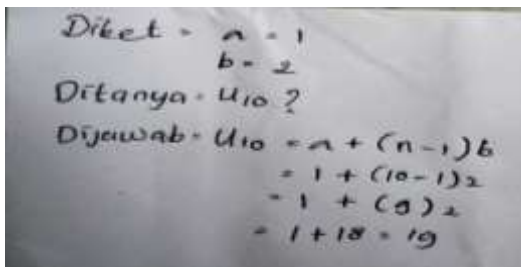 Diket = a = 1
b = 2
Ditanya = U10 ?
Dijawab = U10 = a + (n-1)b
= 1 + (10-1)2
= 1 + (9)2
= 1 + 18 = 19